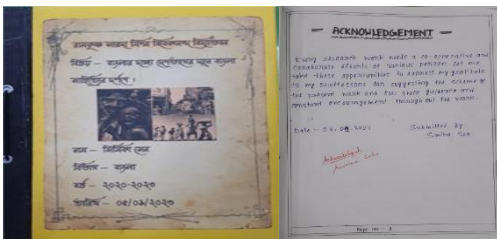 রামকৃষ্ণ সারদা মিশন বিবেকানন্দ বিদ্যাভবন
বিষয় -
সাহিত্যের
নাম - সেন
বিভাগ - বাংলা
বর্ষ - ২০২০-২০২৩
তারিখ - ০৫/০৯/২০২৩
ACKNOWLEDGEMENT
Every research work needs a co-operative and
collaborate efforts of various person. Let me
take these opportunities to express my gratitude
to my professors for suggesting the scheme of
the present work and for their guidance and
constant encouragement through out the work.
Date :- 2023
Submitted by
Sen.
Acknowledged
Page no -